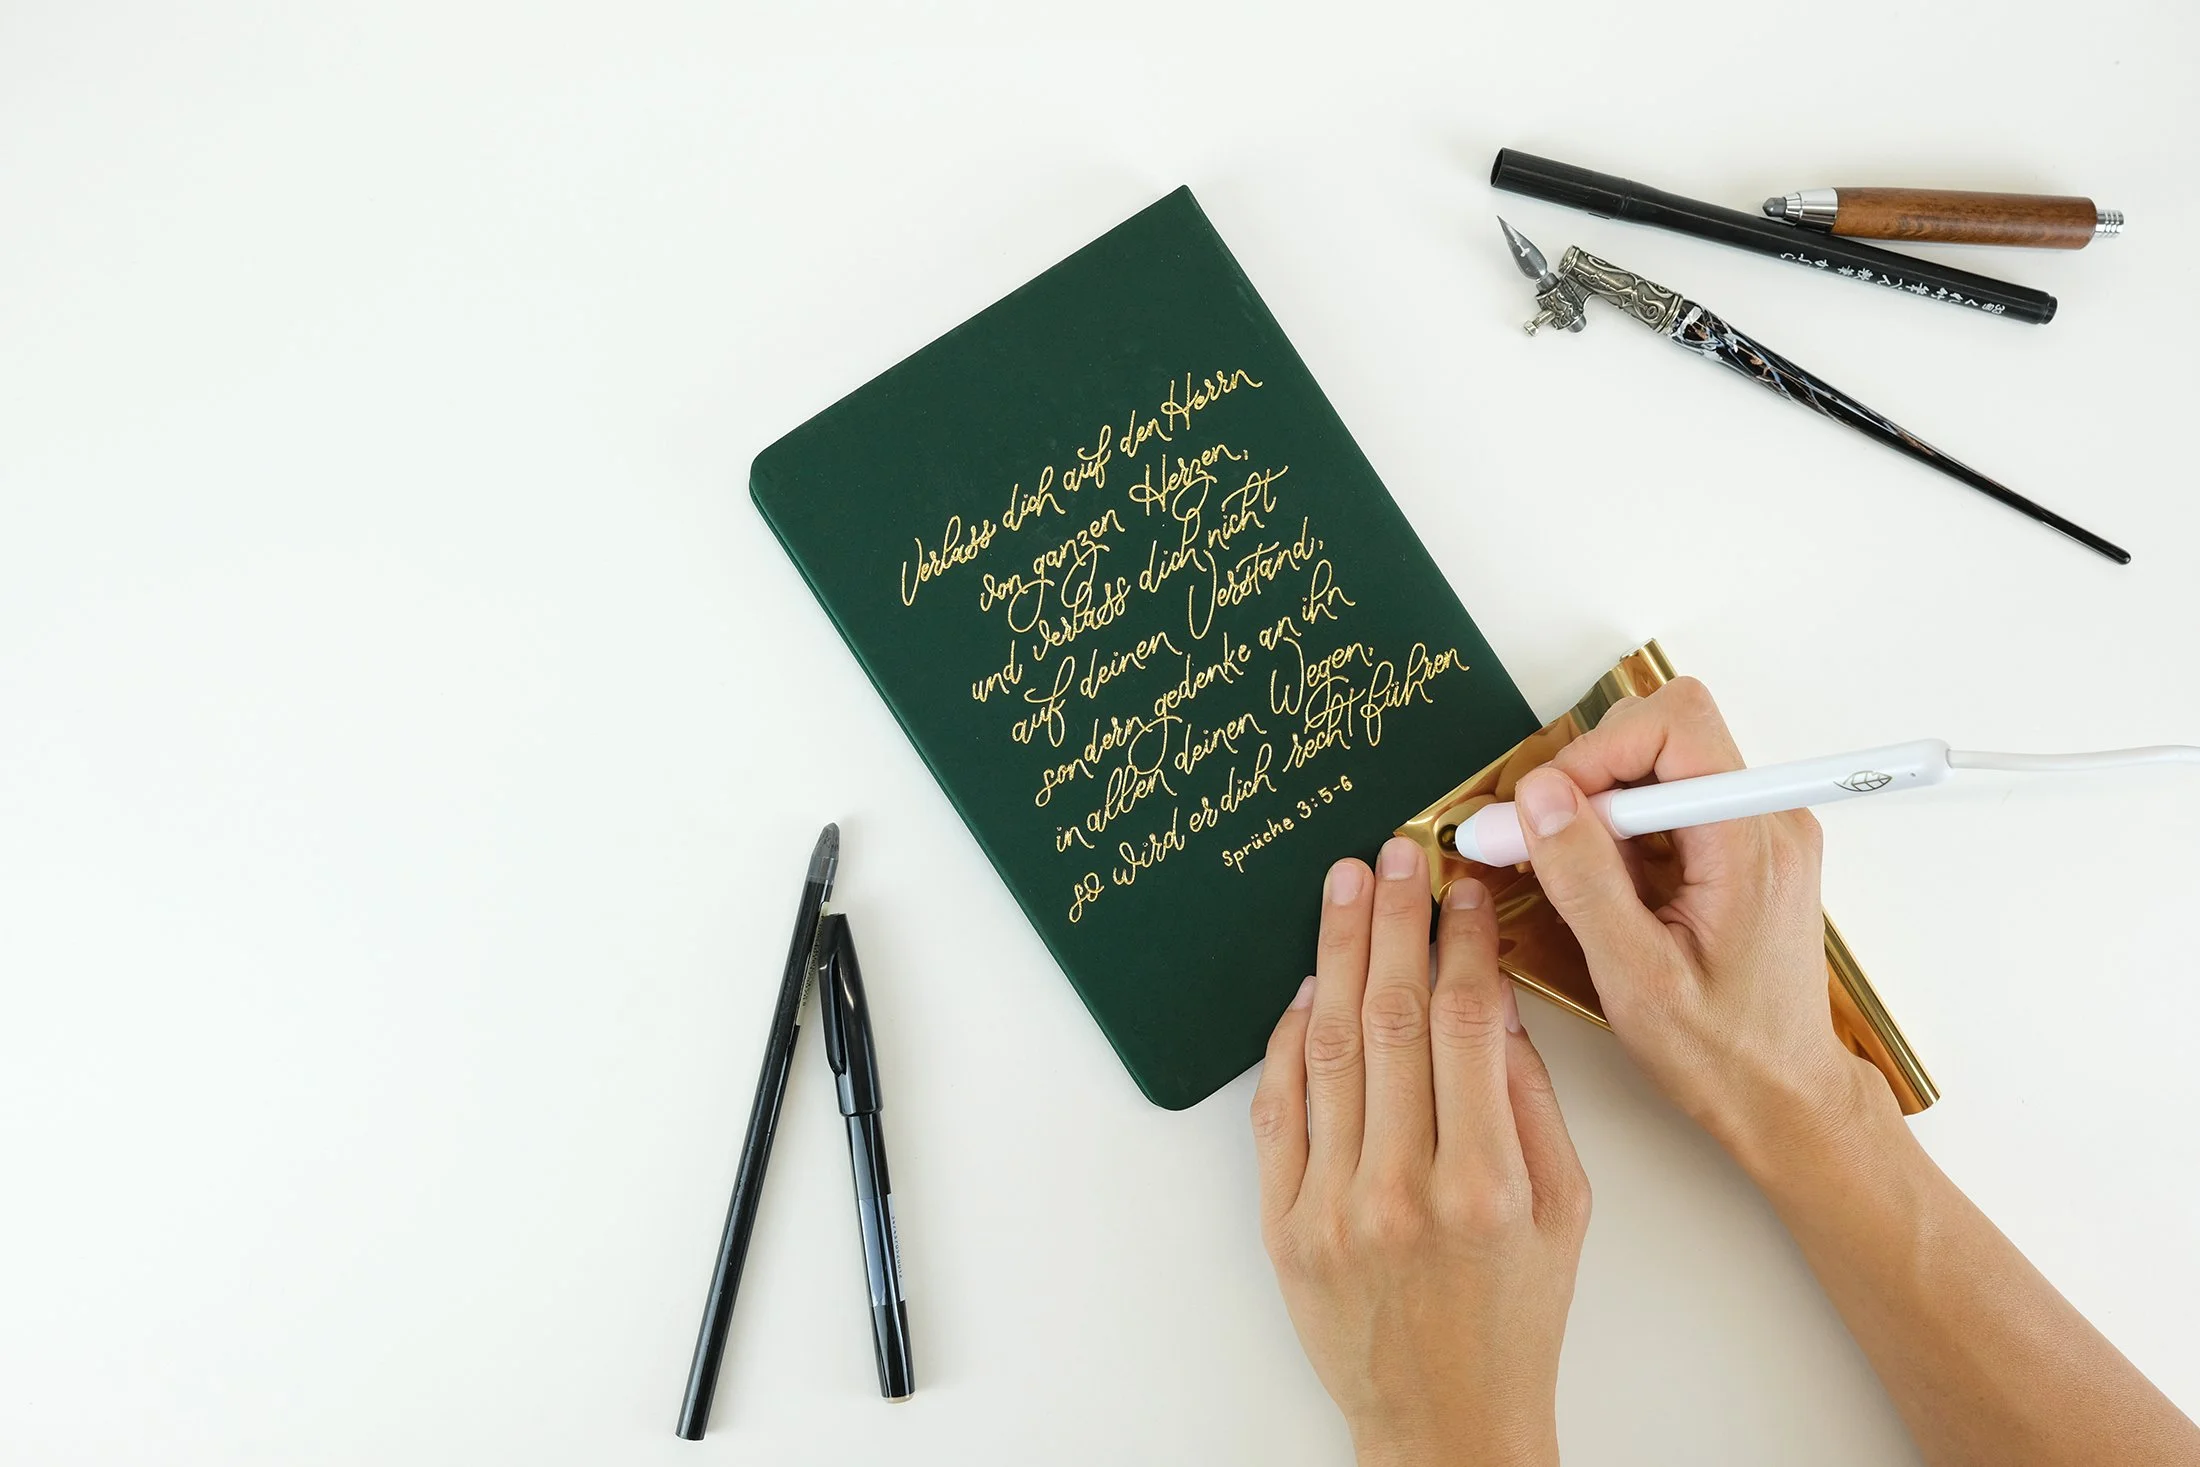 Verlass dich auf den Herrn
von ganzen Herzen,
und verlass dich nicht
auf deinen Verstand,
sondern gedenke an ihn
in allen deinen Wegen,
so wird er dich recht führen
Sprüche 3:5-6